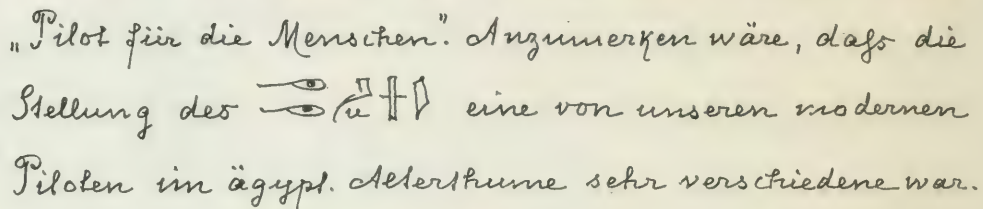 „Pilot für die Menschen“. Anzumerken wäre, dass die
Stellung des eine von unseren modernen
Piloten im ägypt. Alterthume sehr verschiedene war.